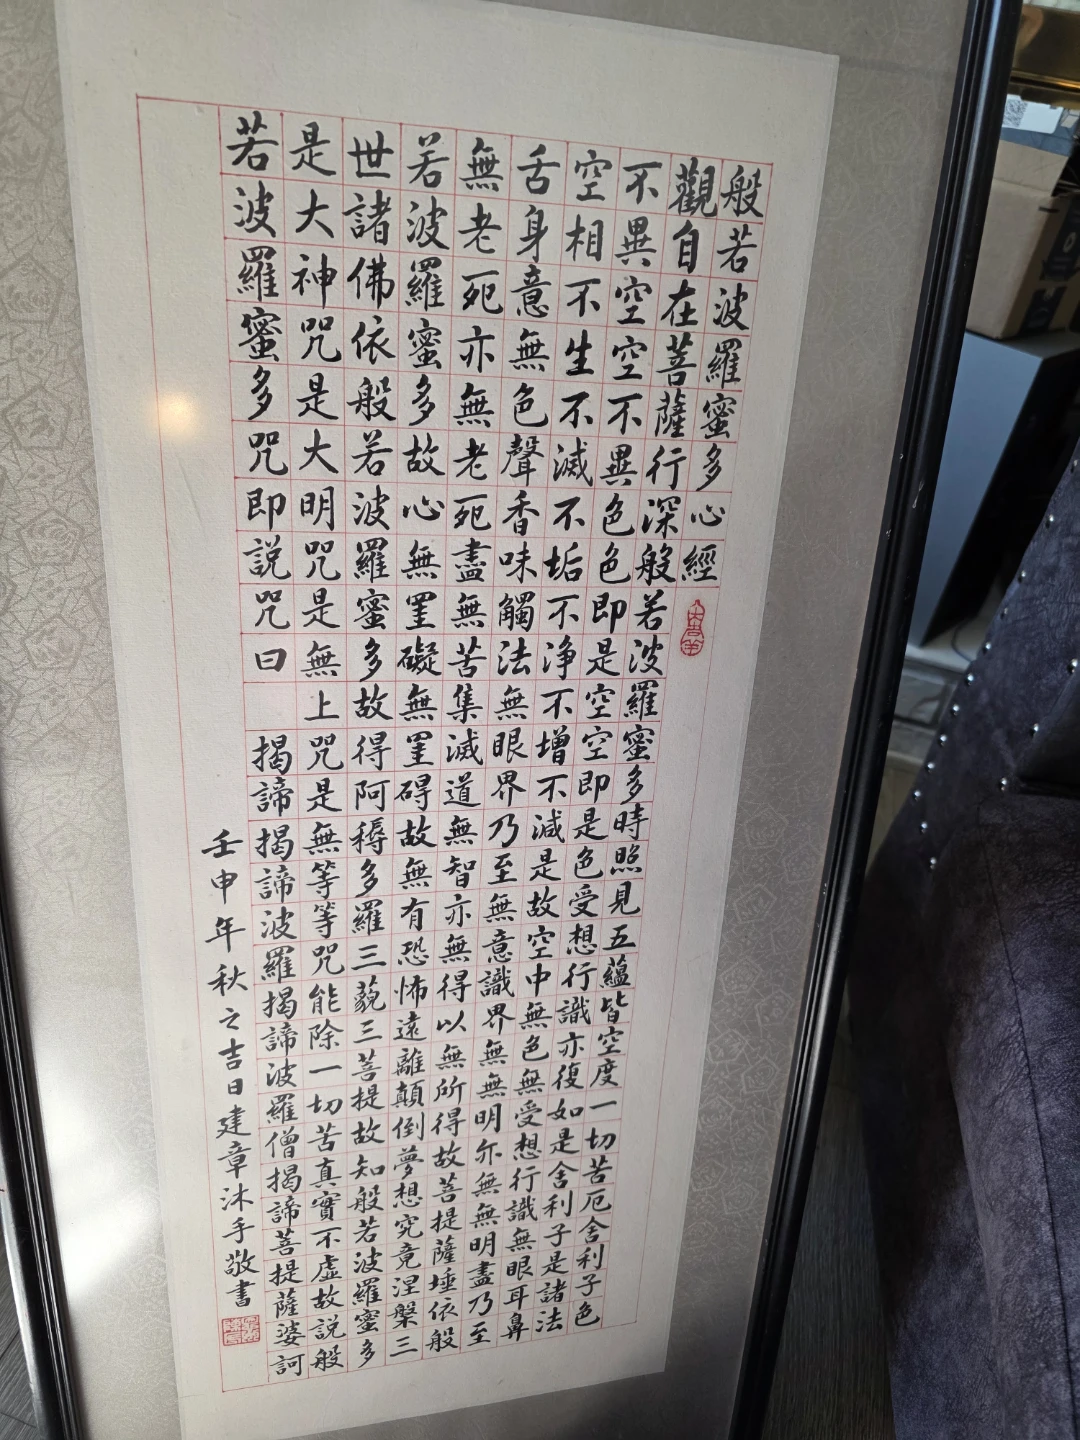 般若波羅蜜多心經
觀自在菩薩行深般若波羅蜜多時照見五蘊皆空度一切苦厄舍利子色
不異空空不異色色即是空空即是色受想行識亦復如是舍利子是諸法
空相不生不滅不垢不淨不增不減是故空中無色無受想行識無眼耳鼻
舌身意無色聲香味觸法無眼界乃至無意識界無無明亦無無明盡乃至
無老死亦無老死盡無苦集滅道無智亦無得以無所得故菩提薩埵依般
若波羅蜜多故心無罣礙無罣碍故無有恐怖遠離顛倒夢想究竟涅槃三
世諸佛依般若波羅蜜多故得阿耨多羅三藐三菩提故知般若波羅蜜多
是大神咒是大明咒是無上咒是無等等咒能除一切苦真實不虛故說般
若波羅蜜多咒即說咒曰 揭諦揭諦波羅揭諦波羅僧揭諦菩提薩婆訶
壬申年秋之吉日建章沐手敬書